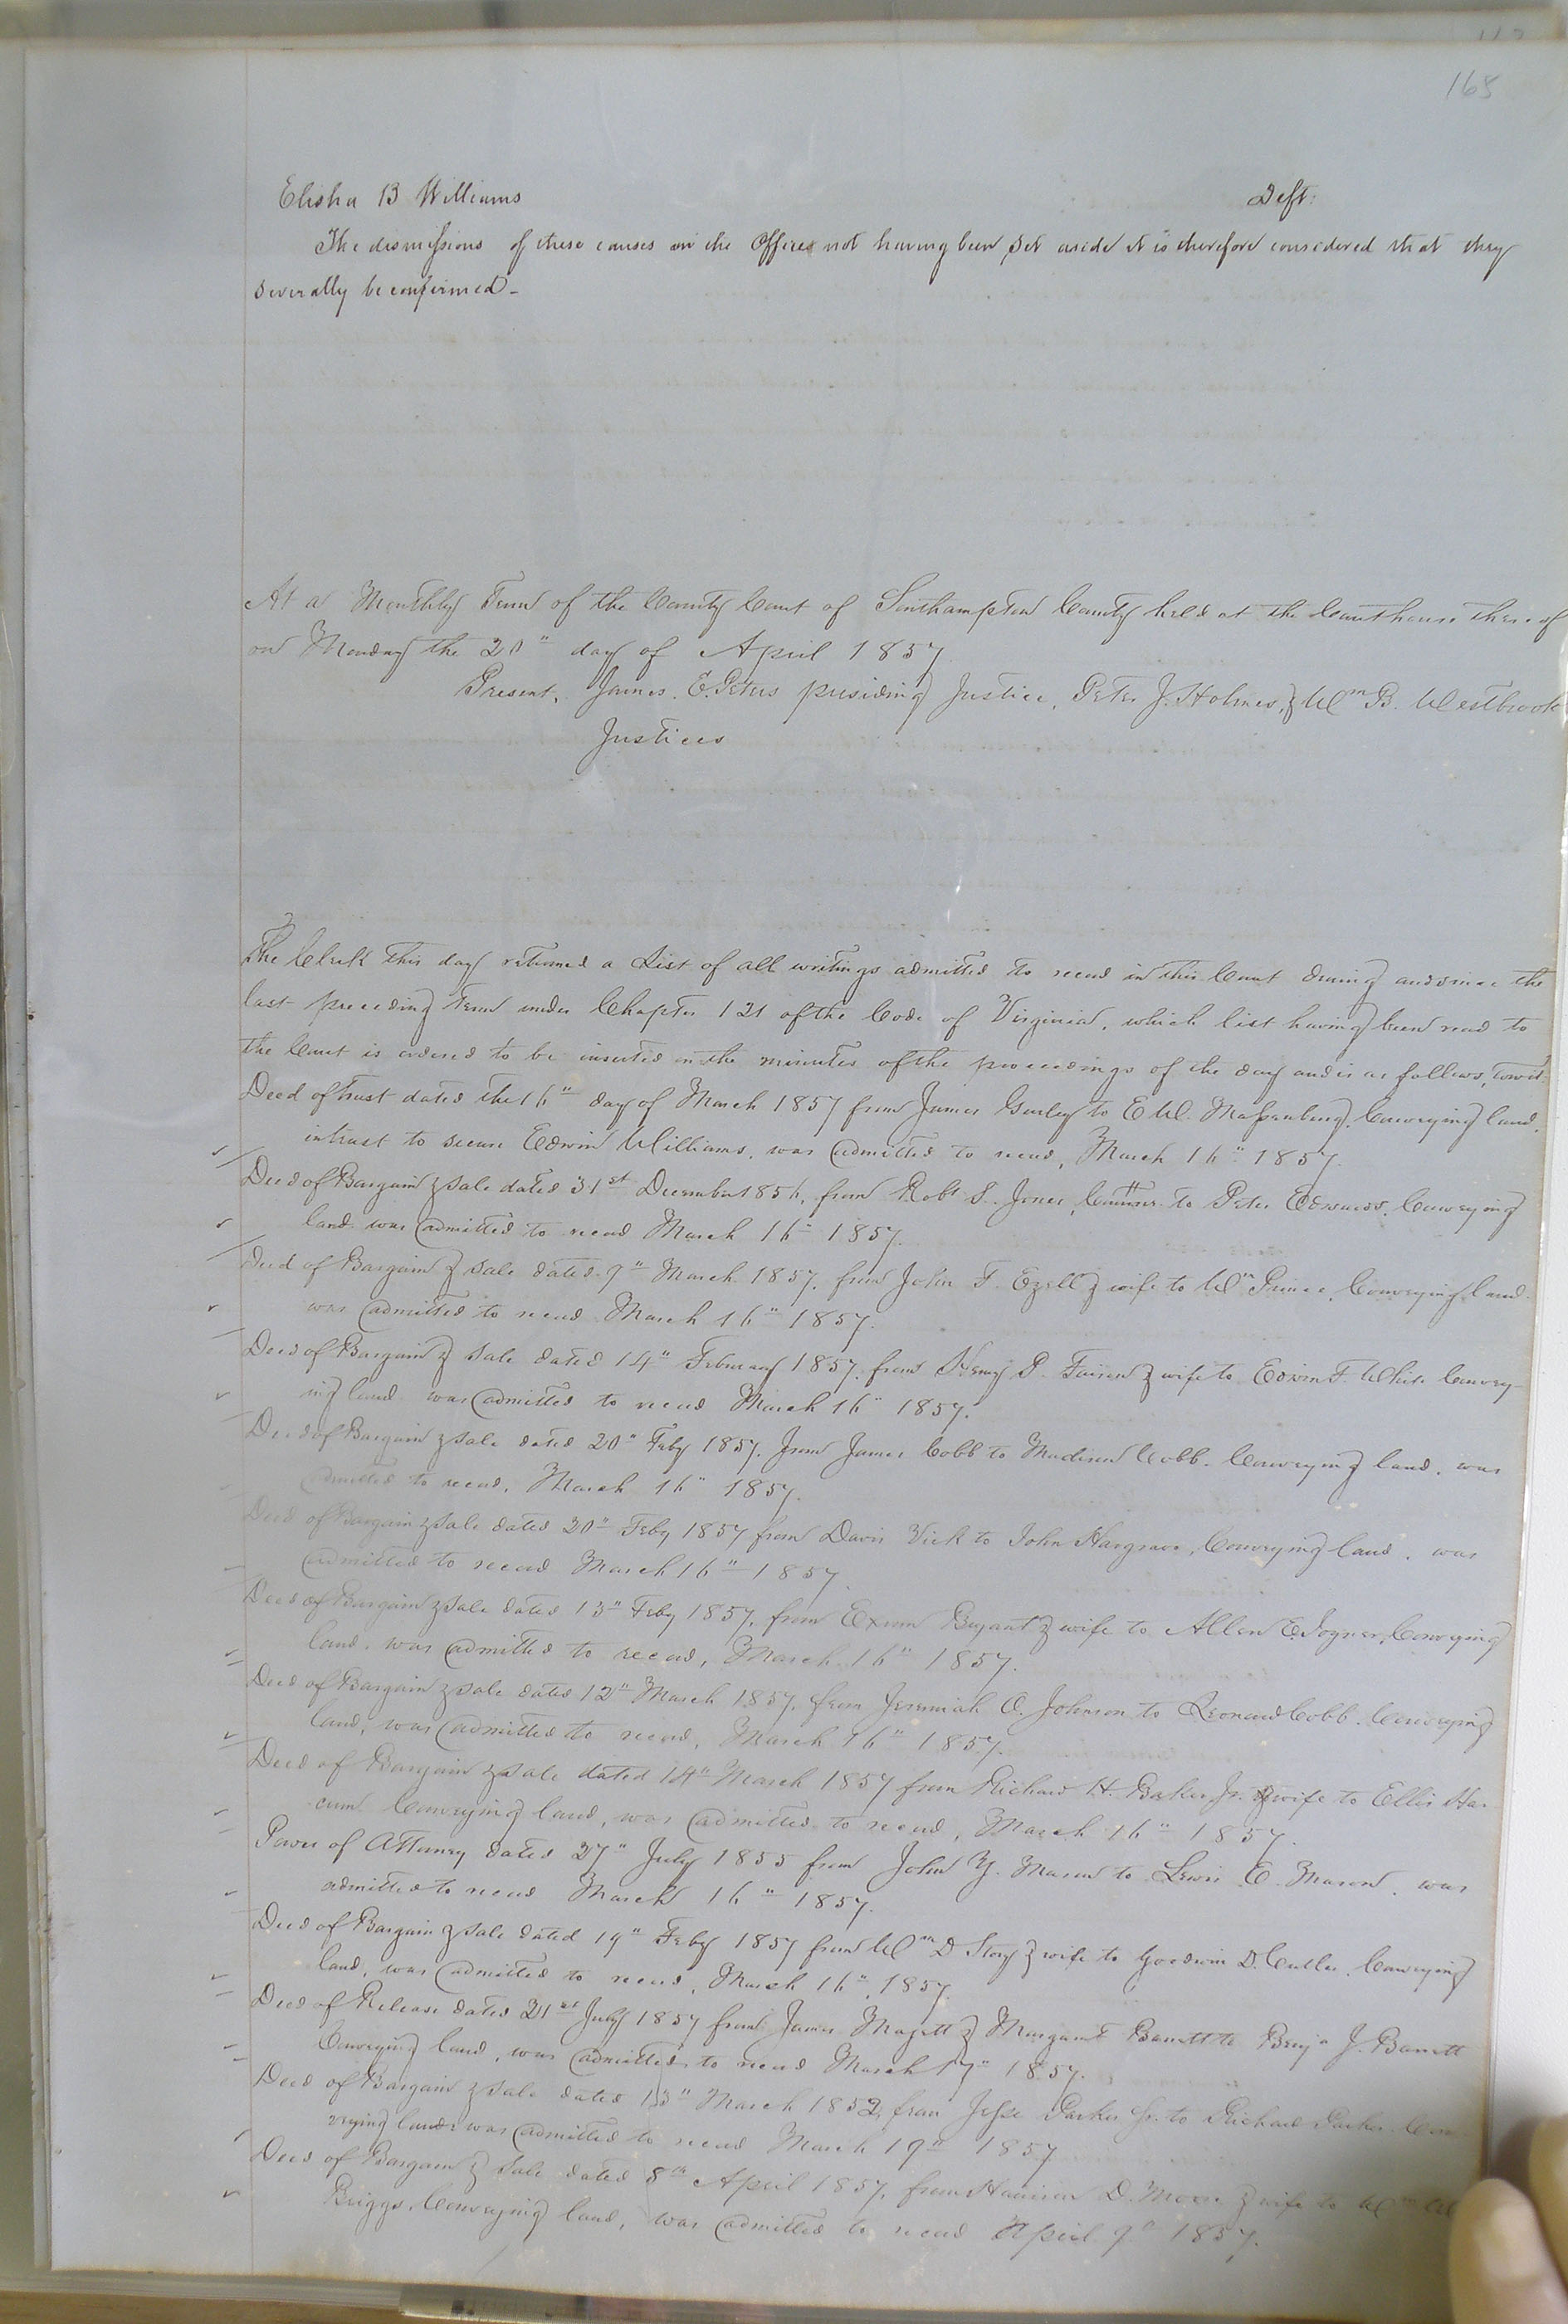 165
Elisha B Williams Deft:
The dismissions of these causes in the Office not having been set aside it is therefore considered that they
severally be confirmed -
At a Monthly Term of the County Court of Southampton County held at the Courthouse thereof
on Monday the 20" day of April 1857
Present, James E. Peters presiding Justice, Peter J. Holmes, & Wm B. Westbrook
Justices
The Clerk this day returned a List of all writings admitted to record in this Court during and since the
last preceding term under Chapter 121 of the Code of Virginia, which list having been read to
the Court is ordered to be inserted in the minutes of the proceedings of the day and is as follows, towit:
Deed of trust dated the 16" day of March 1857 from James Gurley to E W. Massenburg, Conveying land,
in trust to secure Edwin Williams, was admitted to record, March 16" 1857.
Deed of Bargain & Sale dated 31st December 1856, from Robt S. Jones, Commr. to Peter Edwards, Conveying
land was admitted to record March 16" 1857.
Deed of Bargain & Sale dated 9" March 1857, from John F. Ezell & wife to Wm Prince, Conveying land
was admitted to record March 16" 1857.
Deed of Bargain & Sale dated 14" February 1857, from Henry P. Faison & wife to Edwin F. White Convey-
ing land was admitted to record March 16" 1857.
Deed of Bargain & Sale dated 20" Feby 1857, from James Cobb to Madison Cobb, Conveying land, was
admitted to record, March 16" 1857.
Deed of Bargain & Sale dated 20" Feby 1857 from Davis Vick to John Hargrave, Conveying land, was
admitted to record March 16" 1857.
Deed of Bargain & Sale dated 13" Feby 1857, from Exum Bryant & wife to Allen E. Joyner, Conveying
land, was admitted to record, March 16" 1857.
Deed of Bargain & Sale dated 12" March 1857, from Jeremiah O. Johnson to Leonard Cobb, Conveying
land, was admitted to record, March 16" 1857.
Deed of Bargain & Sale dated 14" March 1857 from Richard H. Baker Jr. & wife to Ellis Har-
cum Conveying land, was admitted to record, March 16" 1857.
Power of Attorney dated 27" July 1855 from John Y. Mason to Lewis E. Mason, was
admitted to record March 16" 1857.
Deed of Bargain & Sale dated 19" Feby 1857 from Wm D Story & wife to Goodwin D. Cutler, Conveying
land, was admitted to record, March 16", 1857.
Deed of Release dated 21st July 1857 from James Magett & Margaret Barrett to Benja J. Barrett
Conveying land, was admitted to record March 17" 1857.
Deed of Bargain & Sale dated 13" March 1852, from Jesse Parker Sr. to Richard Parker, Con-
veying land was admitted to record March 19" 1857
Deed of Bargain & Sale dated 8th April 1857, from Harrison D. Moore & wife to Wm
Briggs, Conveying land, was admitted to record April 9" 1857.